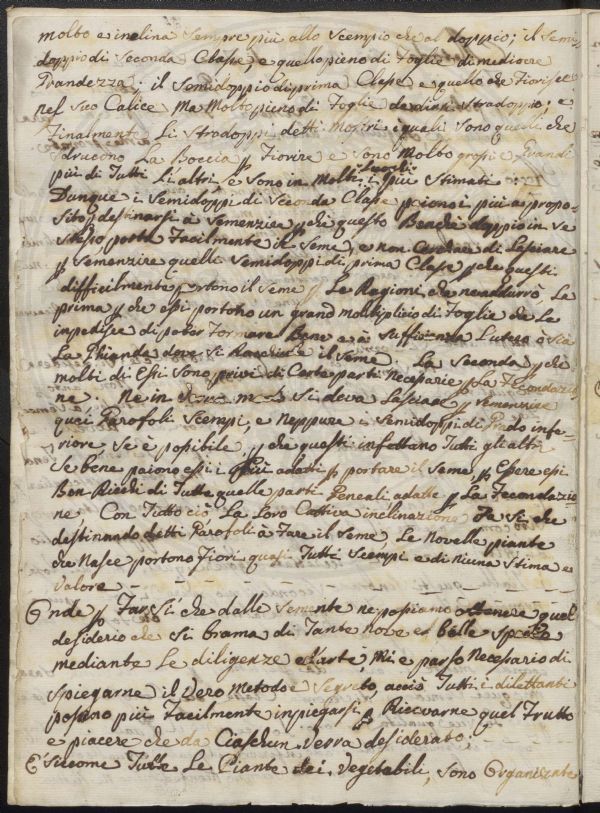 molto e inclina sempre più allo Scempio che al doppio; il Semi-
doppio di Seconda Clase, e quello pieno di Foglie di mediocre
Grandezza; il Semidoppio di prima Clase e quello che Fiorisce
nel suo Calice Ma Molto pieno di Foglie dicesi Stradoppio; e
Finalmente Li Stradoppi detti Mostri i quali Sono quelli che
Sdrucono La Boccia p Fiorire e Sono Molto grossi e Grandi
più di Tutti Li altri, e Sono in Molti Luoghi i più Stimati
Dunque i Semidoppi di Seconda Clase paiono i più a propo-
sito destinarsi à Semenzire, p che questo Benche doppio in se
stesso porta Facilmente il Seme, e non di Lasciare
p Semenzire quelli Semidoppi di prima Clase p che questi
difficilmente portono il Seme p Le Ragioni che ne addurrò Le
prima p che esi portono un grand moltiplicio di Foglie che Le
impedisce di poter Formare Bene e à Sufficienza L'utero ò sia
La Ghianda dove Si Racchiude il Seme. La Seconda p che
molti di Esi Sono privi di Certe parti Necesarie p La Fecondazio
ne. Ne in si deva Lasciare p Semenzire
quei Garofoli Scempi, e Neppure i Semidoppi di Grado infe-
riore, Se è posibile, p che questi infettano Tutti gli altri
Se bene paiono esi i più adatti p portare il Seme, p Esere esi
Ben Ricchi di Tutte quelle parti Geneali adatte p La Fecondazio
ne, Con Tutto ciò La Loro Cattiva inclinazione Fa si che
destinando detti Garofoli à Fare il Seme, Le Novelle piante
che Nasce portono Fiori quasi Tutti Scempi e di Niuna Stima e
Valore
Onde p Far Si che dalle Semente ne posiamo ottenere quel
desiderio che Si brama di Tante Nove e belle Spezie
mediante Le diligenze e L'arte, Mi e parso Necesario di
Spiegarne il Vero Metodo e Segreto, acciò Tutti i dilettanti
posono più Facilmente inpiegarsi p Ricevarne quel Frutto
e piacere che da Ciaschun Verra desiderato.
E Siccome Tutte Le Piante dei Vegetabili, Sono Organizate